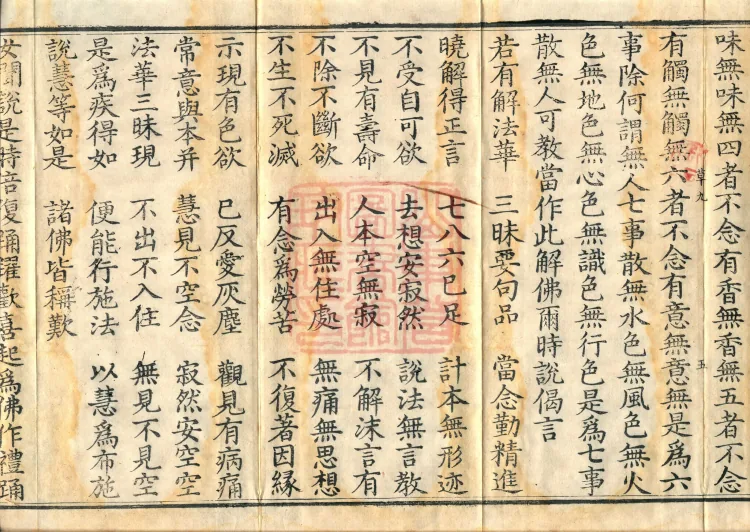 味無味無四者不念有香無香無五者不念
有觸無觸無六者不念有意無意無是為六
事除何謂無人七事散無水色無風色無火
色無地色無心色無識色無行色是為七事
散無人可教當作此解佛爾時說偈言
若有解法華 三昧要句品 當念勤精進
曉解得正言 七八六已足 計本無形迹
不受自可欲 去想安寂然 說法無言教
不見有壽命 人本空無寂 不解沫言有
不除不斷欲 出入無住處 無痛無思想
不生不死滅 有念為勞苦 不復著因緣
示現有色欲 已反愛灰塵 觀見有病痛
常意與本并 慧見不空念 寂然安空空
法華三昧現 不出不入住 無見不見空
是為疾得如 便能行施法 以慧為布施
說慧等如是 諸佛皆稱歎
女聞說是時倍復踊躍歡喜起為佛作禮踊
章九
五